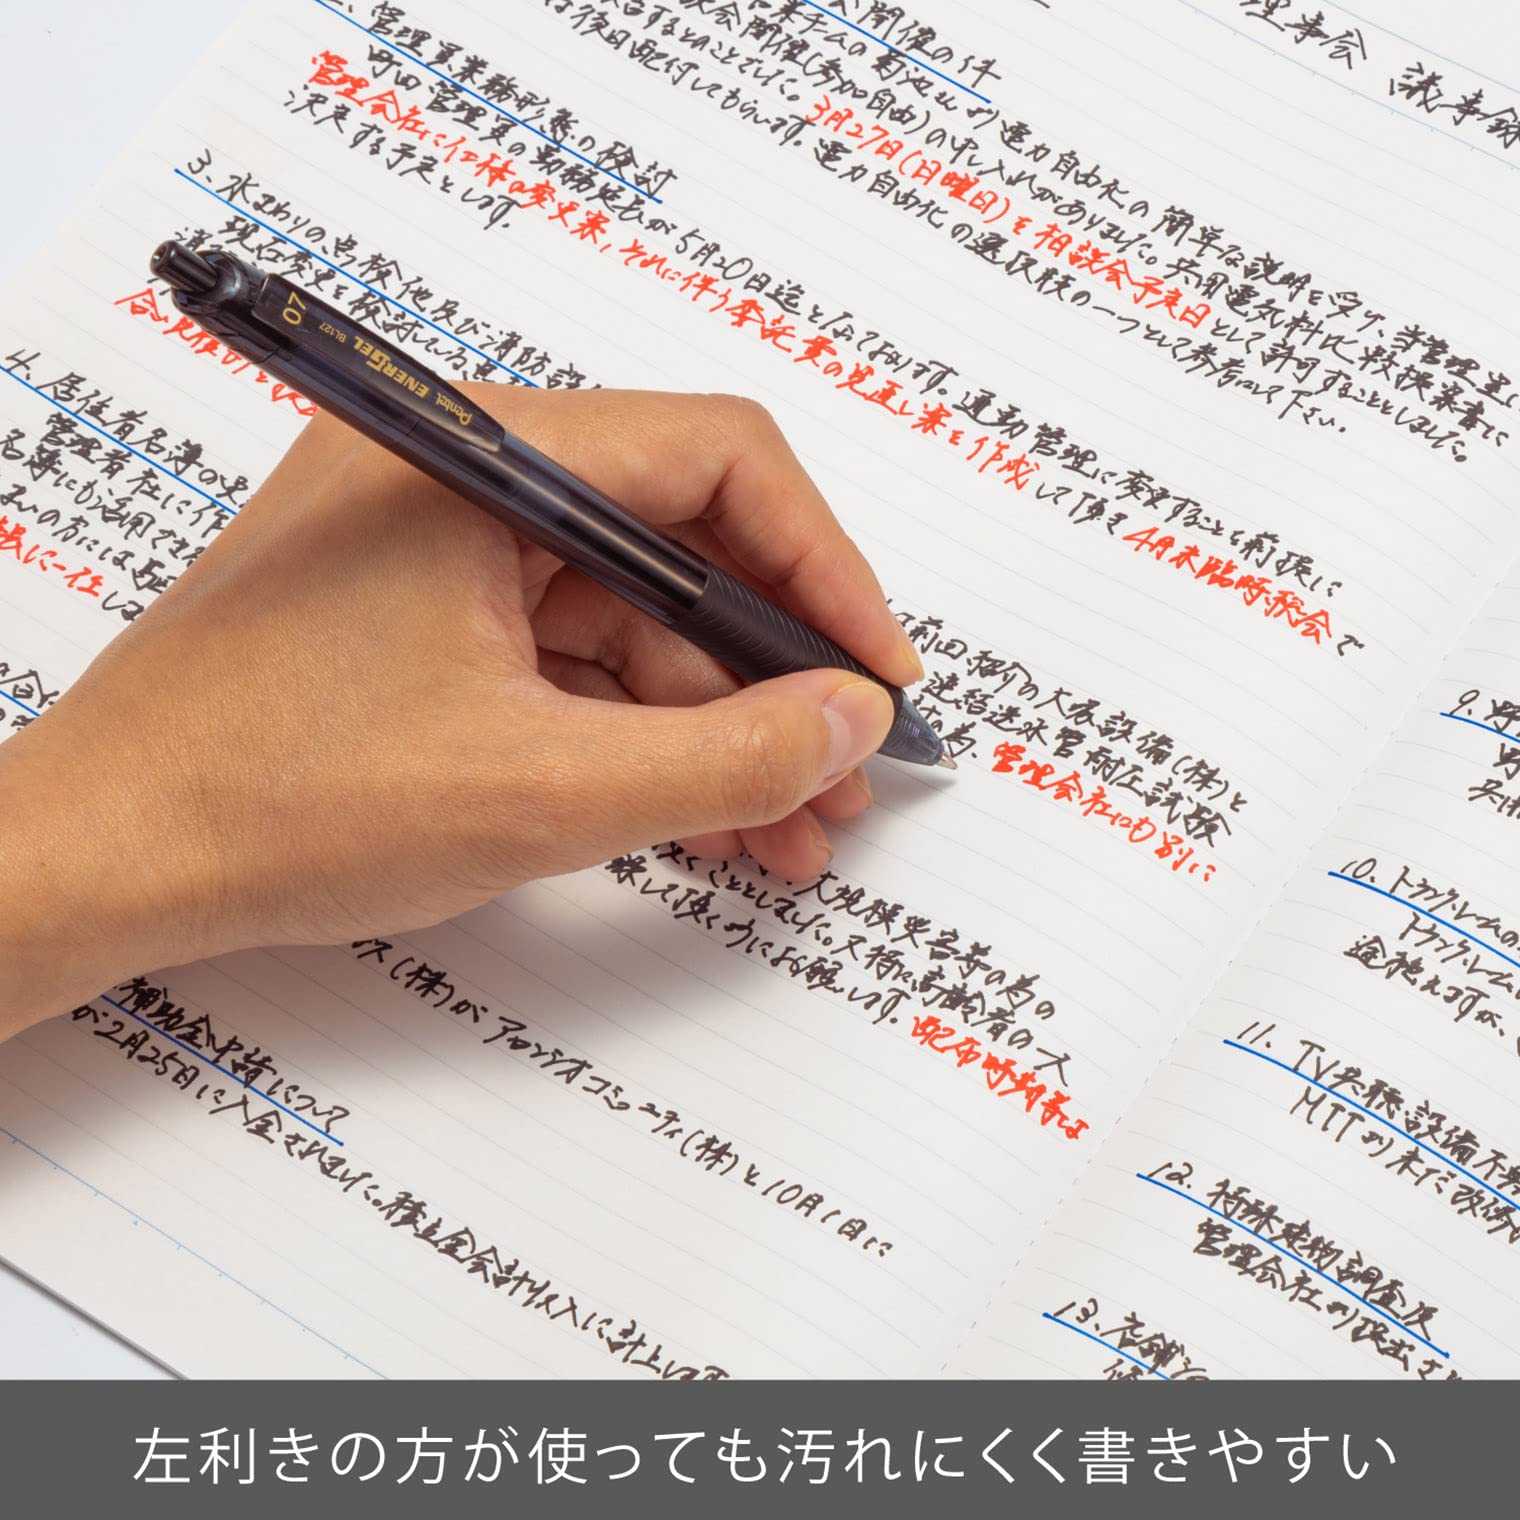 理事会 議事録
公開催の件
り電力自由化の簡単な説明を受け、当管理室に
次会開催(参加自由)の申し入れがありました。共用電気料比較換算書に
3月27日(日曜日)を相談会予定日として許可することとしました。
は後日配付してもらいます。電力自由化の選択肢の一つとして参考にして下さい。
2. 管理員業務形態の検討
町田管理員の勤務延長が5月20日迄となっております。通勤管理に変更することを前提に
管理会社に仕様の変更案、それに伴う委託費の見直し案を作成して頂き4月末臨時総会で
決定する予定とします。
3. 水まわりの点検他及び消防設
現在変更を検討している
合い見積り
4. 居住者名簿の
管理者社に作
名簿にも活用でき
まいの方には
長に一任し
前田紹介の大辰設備(株)と
連結送水管耐圧試験
の為、管理会社にも別に
大規模災害等の為の
くこととしました。又特に高齢者の一人
して頂くのにお願いします。配布時期等は
ス(株)がアロンジオコミュニティ(株)と10月1日に
補助金申請について
が2月25日に入金されました。積立金会計収入に計上します
9.
10. トランクルームの
トランクルーム
11. TV共聴設備不
MTTより未だ改修
12. 特殊建物調査及
管理会社より提出さ
13. 店舗
Pentel ENERGEL BL127 07
左利きの方が使っても汚れにくく書きやすい